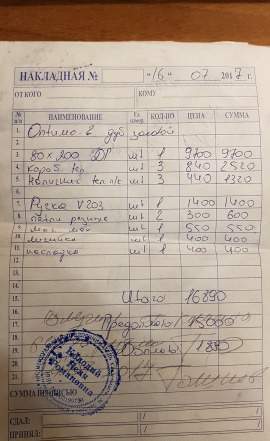 НАКЛАДНАЯ № "16" 07 2017 г.
ОТ КОГО КОМУ
№ п/п НАИМЕНОВАНИЕ Ед. измер. КОЛ-ВО ЦЕНА СУММА
1. Оптима-в дуб
2.
3. 80 х 200 шт 1 9700 9700
4. короб тел шт 3 840 2520
5. наличник тел п/к шт 3 440 1320
6.
7. Ручка V203 шт 1 1400 1400
8. петли шт 2 300 600
9. шт 1 550 550
10. шт 1 400 400
11. накладка шт 1 400 400
12.
13.
14.
15. Итого 16890
16.
17. Предоплата 15000
18.
19. Доплата 1890
20.
21.
СУММА ПРОПИСЬЮ
СДАЛ:
ПРИНЯЛ: